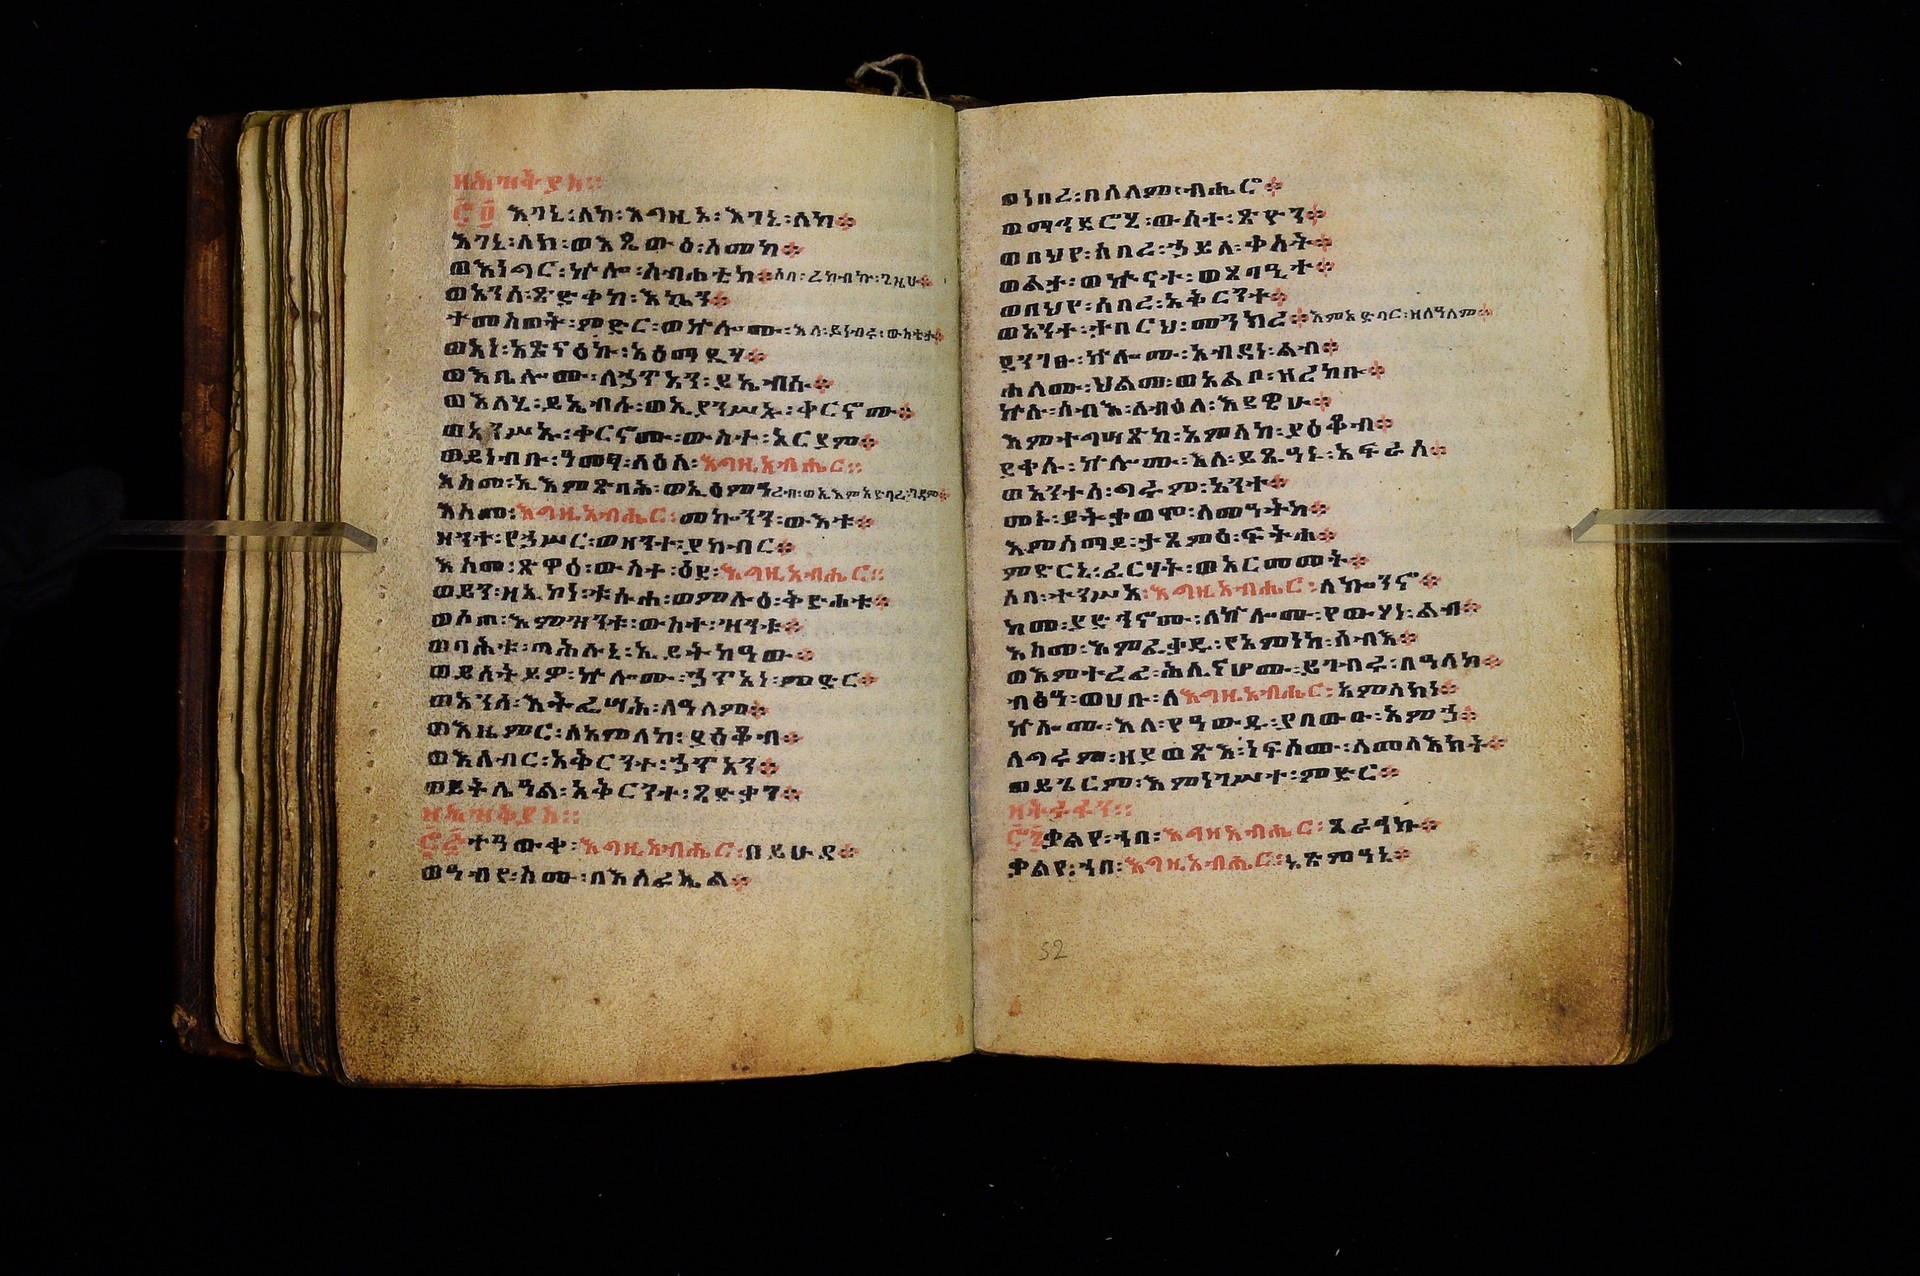 ዘሕዝቅያስ።
፸፬ እገኒ፡ለከ፡እግዚኦ፡እገኒ፡ለከ።
እገኒ፡ለከ፡ወእጼውዕ፡ስመከ።
ወእነግር፡ኵሎ፡ስብሐቲከ።ሶበ፡ረከብኩ፡ጊዜሁ።
ወአንሰ፡ጽድቀ፡እኴንን።
ተመስወት፡ምድር፡ወኵሎሙ፡እለ፡ይነብሩ፡ውስቴታ።
ወአነ፡አጽናዕኩ፡አዕማዲሃ።
ወእቤሎሙ፡ለኃጥአን፡ይኤብሱ።
ወእለሂ፡ይኤብሱ፡ወኢያንሥኡ፡ቀርኖሙ።
ወአንሥኡ፡ቀርኖሙ፡ውስተ፡አርያም።
ወይነብቡ፡ዓመፃ፡ላዕለ፡እግዚአብሔር።
እስመ፡ኢእምጽባሕ፡ወኢዕምዓረብ፡ወኢእምአድባረ፡ገዳም።
እስመ፡እግዚአብሔር፡መኰንን፡ውእቱ።
ዘንተ፡የኃሥር፡ወዘንተ፡ያከብር።
እስመ፡ጽዋዕ፡ውስተ፡ዕደ፡እግዚአብሔር።
ወይን፡ዘኢኮነ፡ቱሱሐ፡ወምሉዕ፡ቅድሐቱ።
ወሶጠ፡እምዝንቱ፡ውስተ፡ዝንቱ።
ወባሕቱ፡ጣሕሉኒ፡ኢይትከዓው።
ወይሰትይዎ፡ኵሎሙ፡ኃጥአነ፡ምድር።
ወአንሰ፡እትፌሣሕ፡ለዓለም።
ወእዜምር፡ለአምላከ፡ያዕቆብ።
ወእሰብር፡አቅርንተ፡ኃጥአን።
ወይትሌዓል፡አቅርንተ፡ጻድቃን።
ዘሕዝቅያስ።
፸፭ ተዓውቀ፡እግዚአብሔር፡በይሁዳ።
ወዓብየ፡ስሙ፡በእስራኤል።
ወነበረ፡በሰላም፡ብሔሮ።
ወማኅደሮሂ፡ውስተ፡ጽዮን።
ወበህየ፡ሰበረ፡ኃይለ፡ቀስት።
ወልታ፡ወኵናተ፡ወጸባዒተ።
ወበህየ፡ሰበረ፡አቅርንተ።
ወአንተ፡ታበርህ፡መንክረ።እምአድባር፡ዘለዓለም።
ደንገፁ፡ኵሎሙ፡አብዳነ፡ልብ።
ሐለሙ፡ህልመ፡ወአልቦ፡ዘረከቡ።
ኵሉ፡ሰብእ፡ለብዕለ፡እደዊሁ።
እምተግሣጽከ፡አምላከ፡ያዕቆብ።
ደቀሱ፡ኵሎሙ፡እለ፡ይጼዓኑ፡አፍራሰ።
ወአንተሰ፡ግሩም፡አንተ።
መኑ፡ይትቃወሞ፡ለመዓትከ።
እምሰማይ፡ታጸምዕ፡ፍትሐ።
ምድርኒ፡ፈርሃት፡ወአርመመት።
ሶበ፡ተንሥአ፡እግዚአብሔር፡ለኰንኖ።
ከመ፡ያድኅኖሙ፡ለኵሎሙ፡የውሃነ፡ልብ።
እስመ፡እምፈቃዱ፡የአምነከ፡ሰብእ።
ወእምተረፈ፡ሕሊናሆሙ፡ይገብሩ፡በዓላከ።
ብፅዓ፡ወሀቡ፡ለእግዚአብሔር፡አምላክነ።
ኵሎሙ፡እለ፡የዓውዱ፡ያበውኡ፡አምኃ።
ለግሩም፡ዘያወጽእ፡ነፍሶሙ፡ለመላእክት።
ወይጌርም፡እምነገሥተ፡ምድር።
ዘኢዲቱን።
፸፮ ቃልየ፡ኀበ፡እግዚአብሔር፡ጸራኅኩ።
ቃልየ፡ኀበ፡እግዚአብሔር፡ኒጽምዓኒ።
52